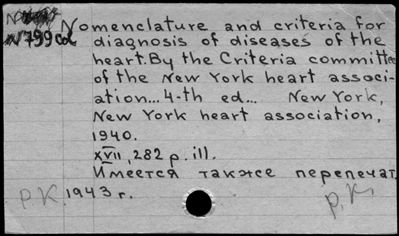 Nomenclature and criteria for
N799col diagnosis of diseases of the
heart. By the Criteria committee
of the New York heart associ-
ation... 4-th ed... New York,
New York heart association,
1940.
XVII, 282 p. ill.
Имеется также перепечат.
р.К. 1943 г.
р.К.